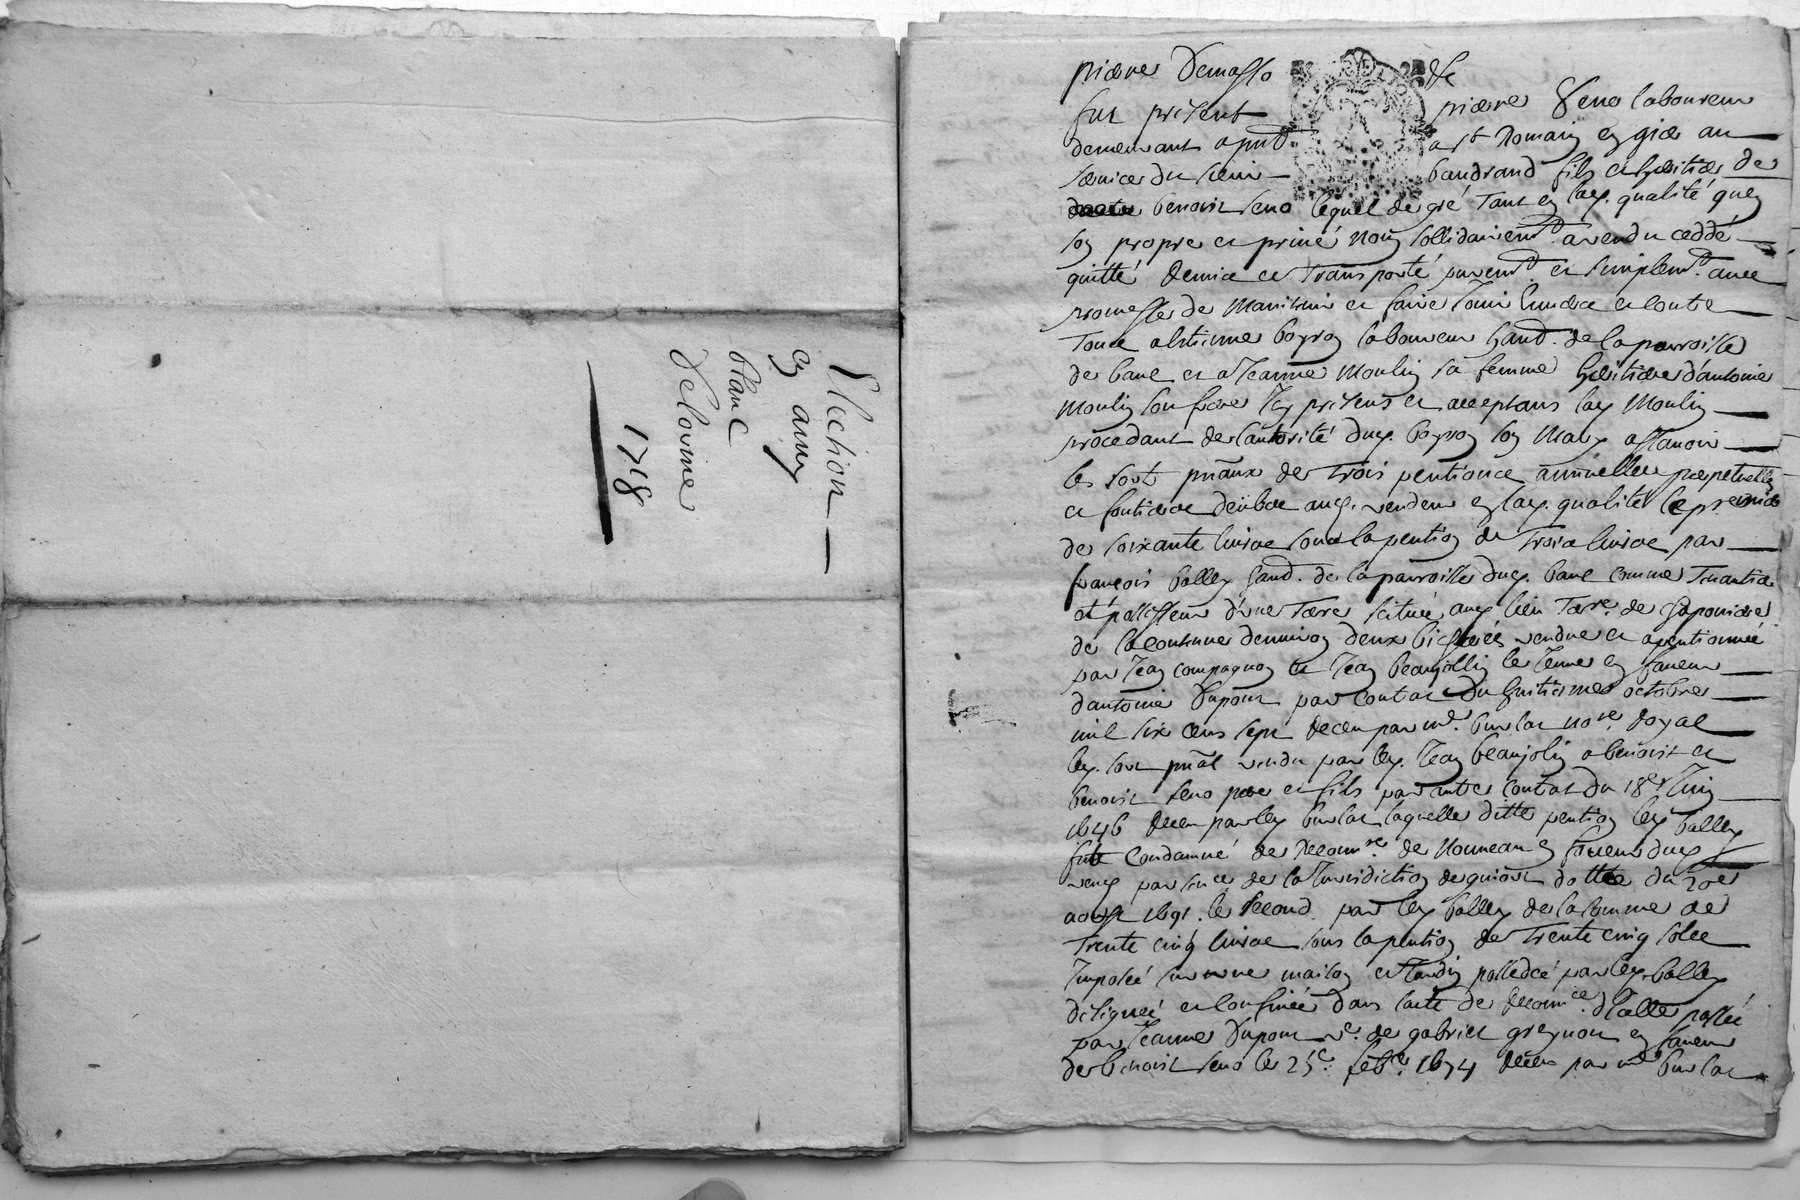 Election
en amy
blanc
Delorme
1718
fut present pierre Seno laboureur
demeurant a pnt a st Romain en gier au
service du sieur baudrand fils et heritier de
benoist Seno lequel de gré tant en lad. qualité quen
son propre et privé nom sollidairemt. a vendu ceddé
quitté demis et transporté puremt. et simplemt. avec
promesse de maintenir et faire jouir envers et contre
tous a estienne boyron laboureur habt. de la parroisse
de bans et a Jeanne Moulin sa femme heritiere d'antoine
Moulin son frere icy presens et acceptans lad. Moulin
procedant de lautorité dud. boyron son mary assavoir
les sort pnaux de trois pentions annuelles perpetuelles
et fontieres deubes aud. vendeur en lad. qualité le premier
de soixante livres sous la pention de trois livres par
françois balley habt. de la parroisse dud. bans comme tenantier
et possesseur d'une terre scituée aud. lieu terre. de
de la contenue denviron deux bicherées vendue et apentionnée
par Jean compagnon et Jean beaujollin le Jeune en faveur
dantoine Dupont par contrat du huitiemes octobre
mil six cens sept receu par me. burlat nore. Royal
led. sort pnal vendu par led. Jean beaujolin a benoist et
benoist Seno pere et fils par autre contrat du 18e. Juin
1646 receu par led. burlat laquelle ditte pention led. balley
fut condamné de reconnre. de nouveau en faveur dud.
vend. par snce. de la Jurisdiction de givort dattée du 20e
aoust 1691. le second par led. balley de la somme de
trente cinq livres sous la pention de trente cinq sols
imposée sur une maison et jardin possedée par led. balley
designée et confinée dans lacte de reconnce. dicelle passée
par Jeanne Dupont ve. de gabriel greynon en faveur
de benoist Seno le 25e. febre. 1674 receu par me burlat